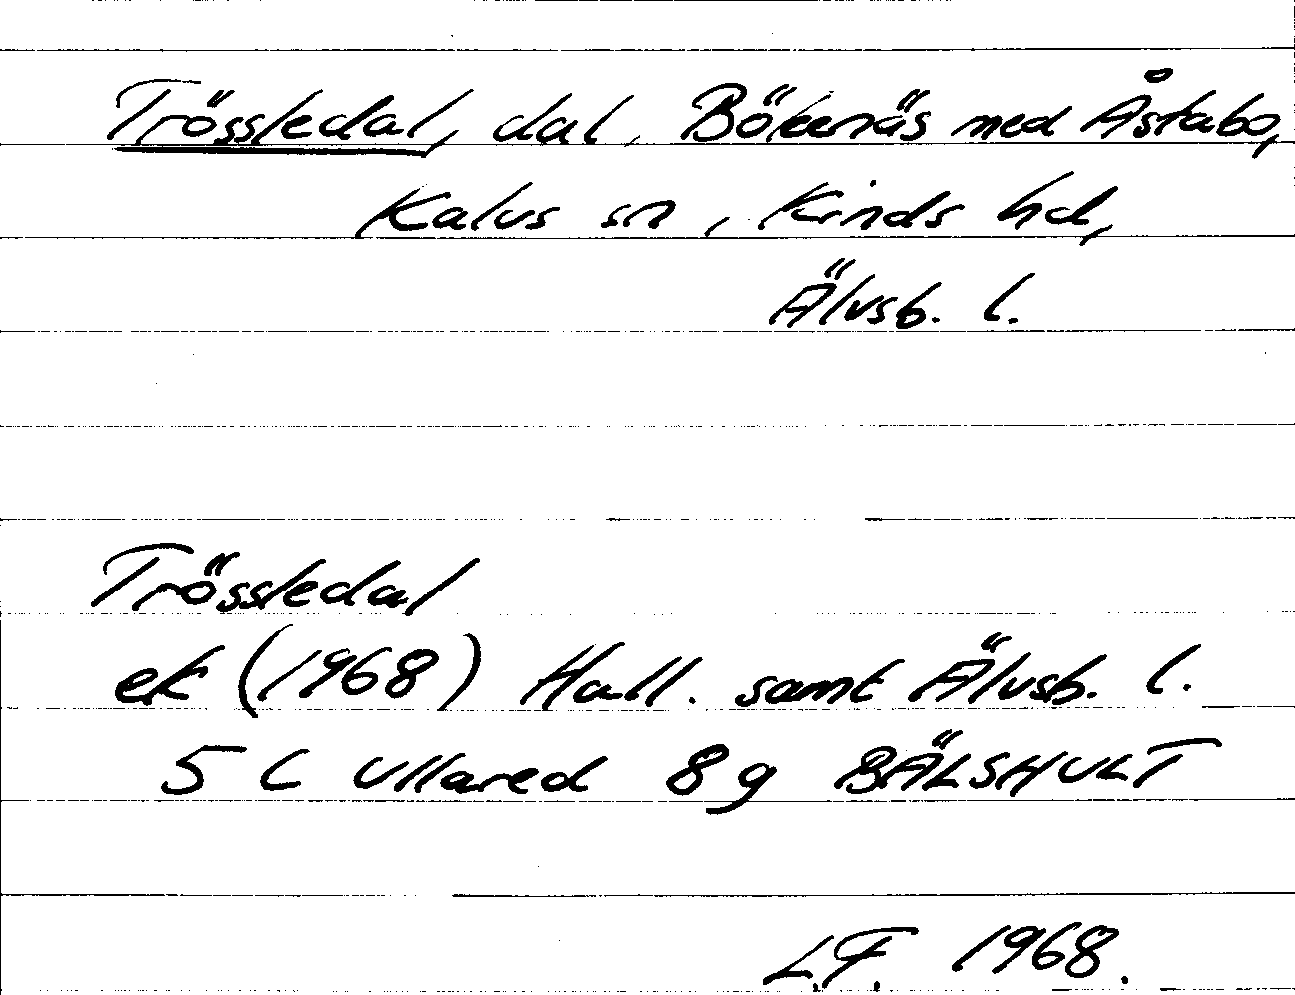 Trössledal, dal, Bökenäs med Åstabo,
Kalvs sn, Kinds hd,
Älvsb. l.
Trössledal
ek (1968) Hall. samt Älvsb. l.
5 C Ullared 8 g BÄLSHULT
L.F. 1968.